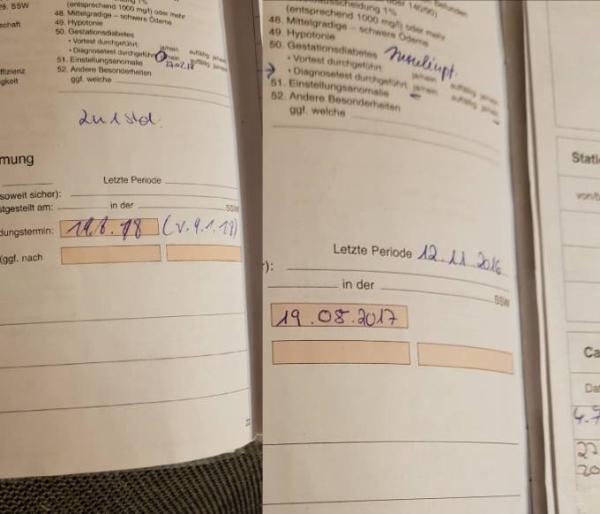 es. SSW
(entsprechend 1000 mg/l) oder mehr
48. Mittelgradige – schwere Ödeme
schaft
49. Hypotonie
50. Gestationsdiabetes
• Vortest durchgeführt,
• Diagnosetest durchgeführt,
51. Einstellungsanomalie
ffizienz
52. Andere Besonderheiten
gkeit
ggf. welche
mung
Letzte Periode
soweit sicher):
stgestellt am:
in der
SSW
dungstermin:
19.8.18
(ggf. nach
ausscheidung 1%
(entsprechend 1000 mg/l) oder mehr
48. Mittelgradige – schwere Ödeme
49. Hypotonie
50. Gestationsdiabetes
• Vortest durchgeführt,
• Diagnosetest durchgeführt,
51. Einstellungsanomalie
52. Andere Besonderheiten
ggf. welche
Letzte Periode 12.11.2016
):
in der
SSW
19.08.2017
Stati
von/b
Ca
Da
4.7
22
20